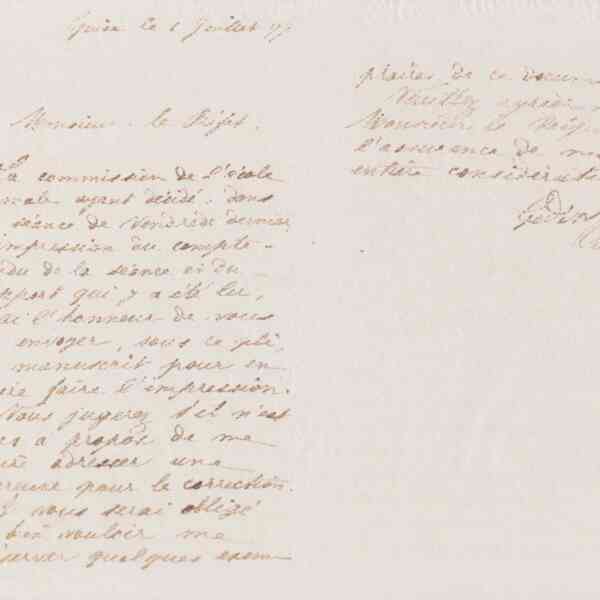 Guise le 6 Juillet 77
Monsieur le Préfet.
La commission de l'école
male ayant décidé, dans
séance de Vendredi dernier
impression du compte-
ndu de la séance et du
pport qui y a été lu,
ai l'honneur de vous
envoyer, sous ce pli,
manuscrit pour en
faire l'impression.
Vous jugerez s'il n'est
as à propos de me
adresser une
reuve pour la correction.
vous serai obligé
bien vouloir me
server quelques exem
plaires de ce docum
Veuillez agréer
Monsieur le Préf
l'assurance de m
entière considérati
Godin